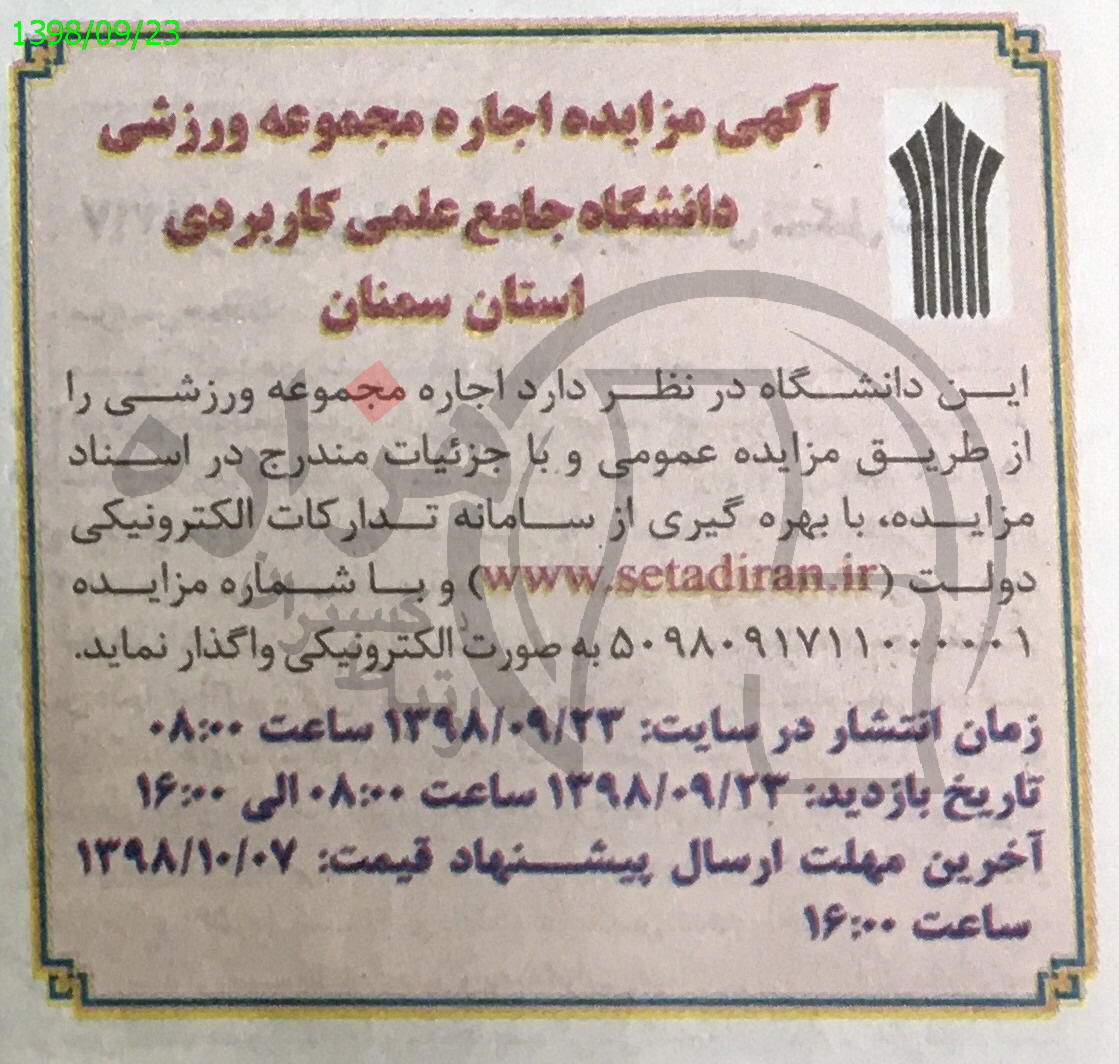 1398/09/23
آگهی مزایده اجاره مجموعه ورزشی
دانشگاه جامع علمی کاربردی
استان سمنان
این دانشگاه در نظر دارد اجاره مجموعه ورزشی را
از طریق مزایده عمومی و با جزئیات مندرج در اسناد
مزایده، با بهره گیری از سامانه تدارکات الکترونیکی
دولت (www.setadiran.ir) و با شماره مزایده
۵۰۹۸۰۹۱۷۱۱۰۰۰۰۰۱ به صورت الکترونیکی واگذار نماید.
زمان انتشار در سایت: ۱۳۹۸/۰۹/۲۳ ساعت ۰۸:۰۰
تاریخ بازدید: ۱۳۹۸/۰۹/۲۳ ساعت ۰۸:۰۰ الی ۱۶:۰۰
آخرین مهلت ارسال پیشنهاد قیمت: ۱۳۹۸/۱۰/۰۷
ساعت ۱۶:۰۰